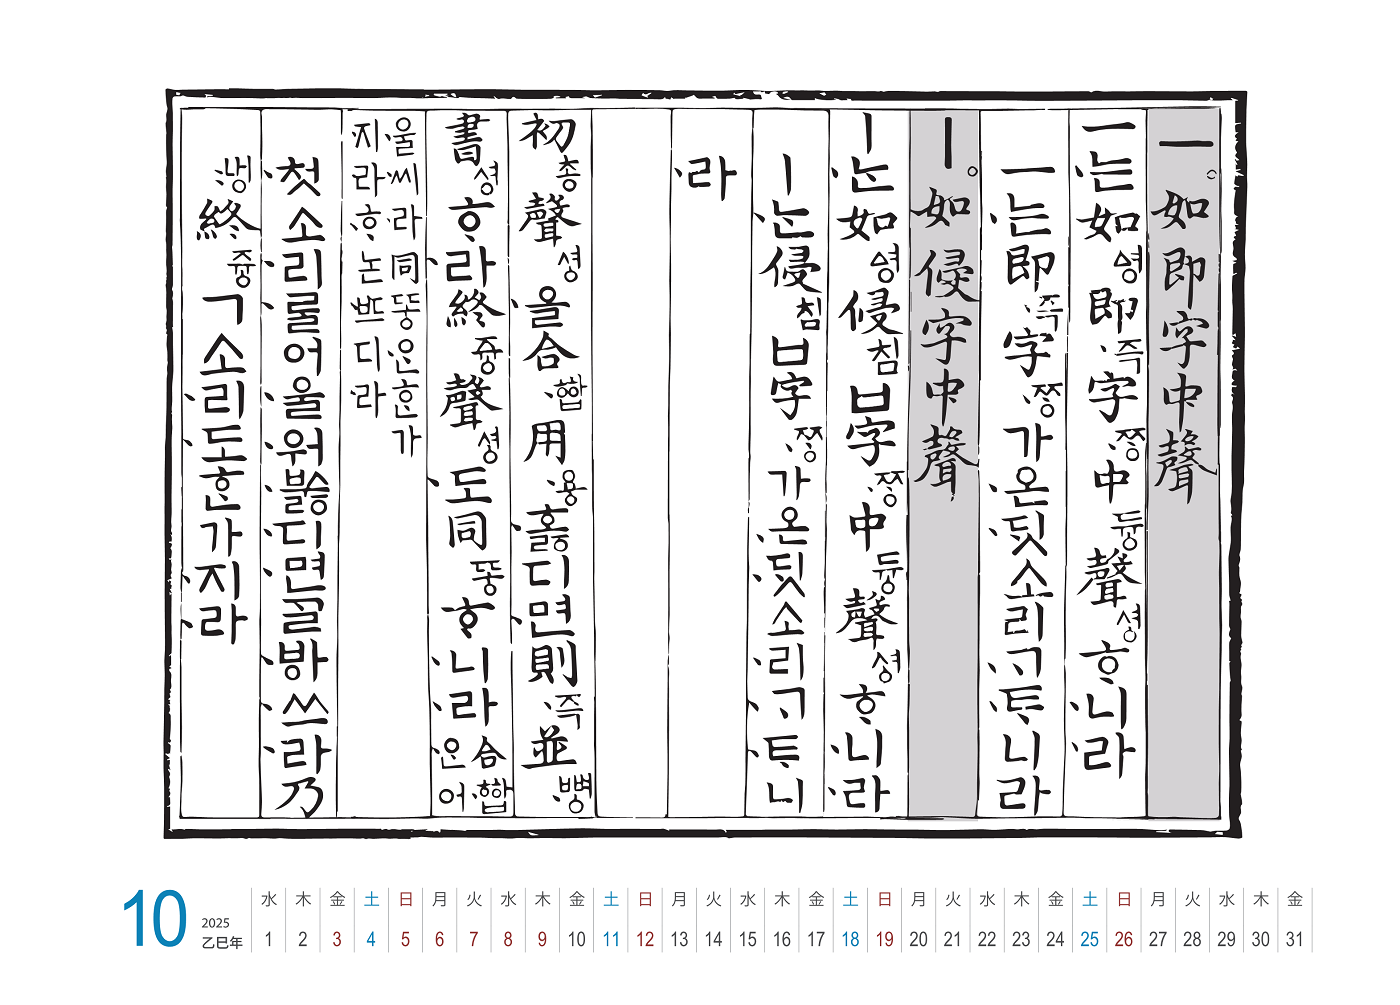 ㅡ。如即字中聲
ㅡ는如ᅀᅧᆼ即즉字ᄍᆞᆼ中듕聲셩ᄒᆞ니라
ㅡ는即즉字ᄍᆞᆼ가온ᄃᆡᆺ소리ᄀᆞᄐᆞ니라
ㅣ。如侵字中聲
ㅣᄂᆞᆫ如ᅀᅧᆼ侵침ㅂ字ᄍᆞᆼ中듕聲셩ᄒᆞ니라
ㅣᄂᆞᆫ侵침ㅂ字ᄍᆞᆼ가온ᄃᆡᆺ소리ᄀᆞᄐᆞ니
라
初총聲셩을合합用용ᄒᆞᇙ디면則즉並뼝
書셩ᄒᆞ라終즁聲셩도同똥ᄒᆞ니라合합은어
울씨라同똥은ᄒᆞᆫ가
지라ᄒᆞ논ᄠᅳ디라
첫소리ᄅᆞᆯ어울워ᄡᅮᇙ디면ᄀᆞᆯᄫᅡ쓰라乃
냉終즁ㄱ소리도ᄒᆞᆫ가지라
10
2025
乙巳年
水 木 金 土 日 月 火 水 木 金 土 日 月 火 水 木 金 土 日 月 火 水 木 金 土 日 月 火 水 木 金
1 2 3 4 5 6 7 8 9 10 11 12 13 14 15 16 17 18 19 20 21 22 23 24 25 26 27 28 29 30 31